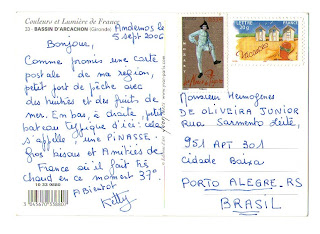 Couleurs et Lumière de France
33 - BASSIN D'ARCACHON (Gironde)
Andernos le
5 sept 2006
Bonjour,
Comme promis une carte
postale de ma region,
petit port de pêche avec
des huitres et des fruits de
mer. En bas, à droite, petit
bateau typique d'ici: cela
s'appelle "une PINASSE".
Gros bisous et Amitiés de
France où il fait très
chaud en ce moment 37°.
10 33 9882
A Bientôt
Ketty
LETTRE
20g
Vacances
Monsieur Hermogenes
DE OLIVEIRA JUNIOR
Rua Sarmento Leite,
951 APT 301
Cidade Baixa
PORTO ALEGRE.RS
BRASIL